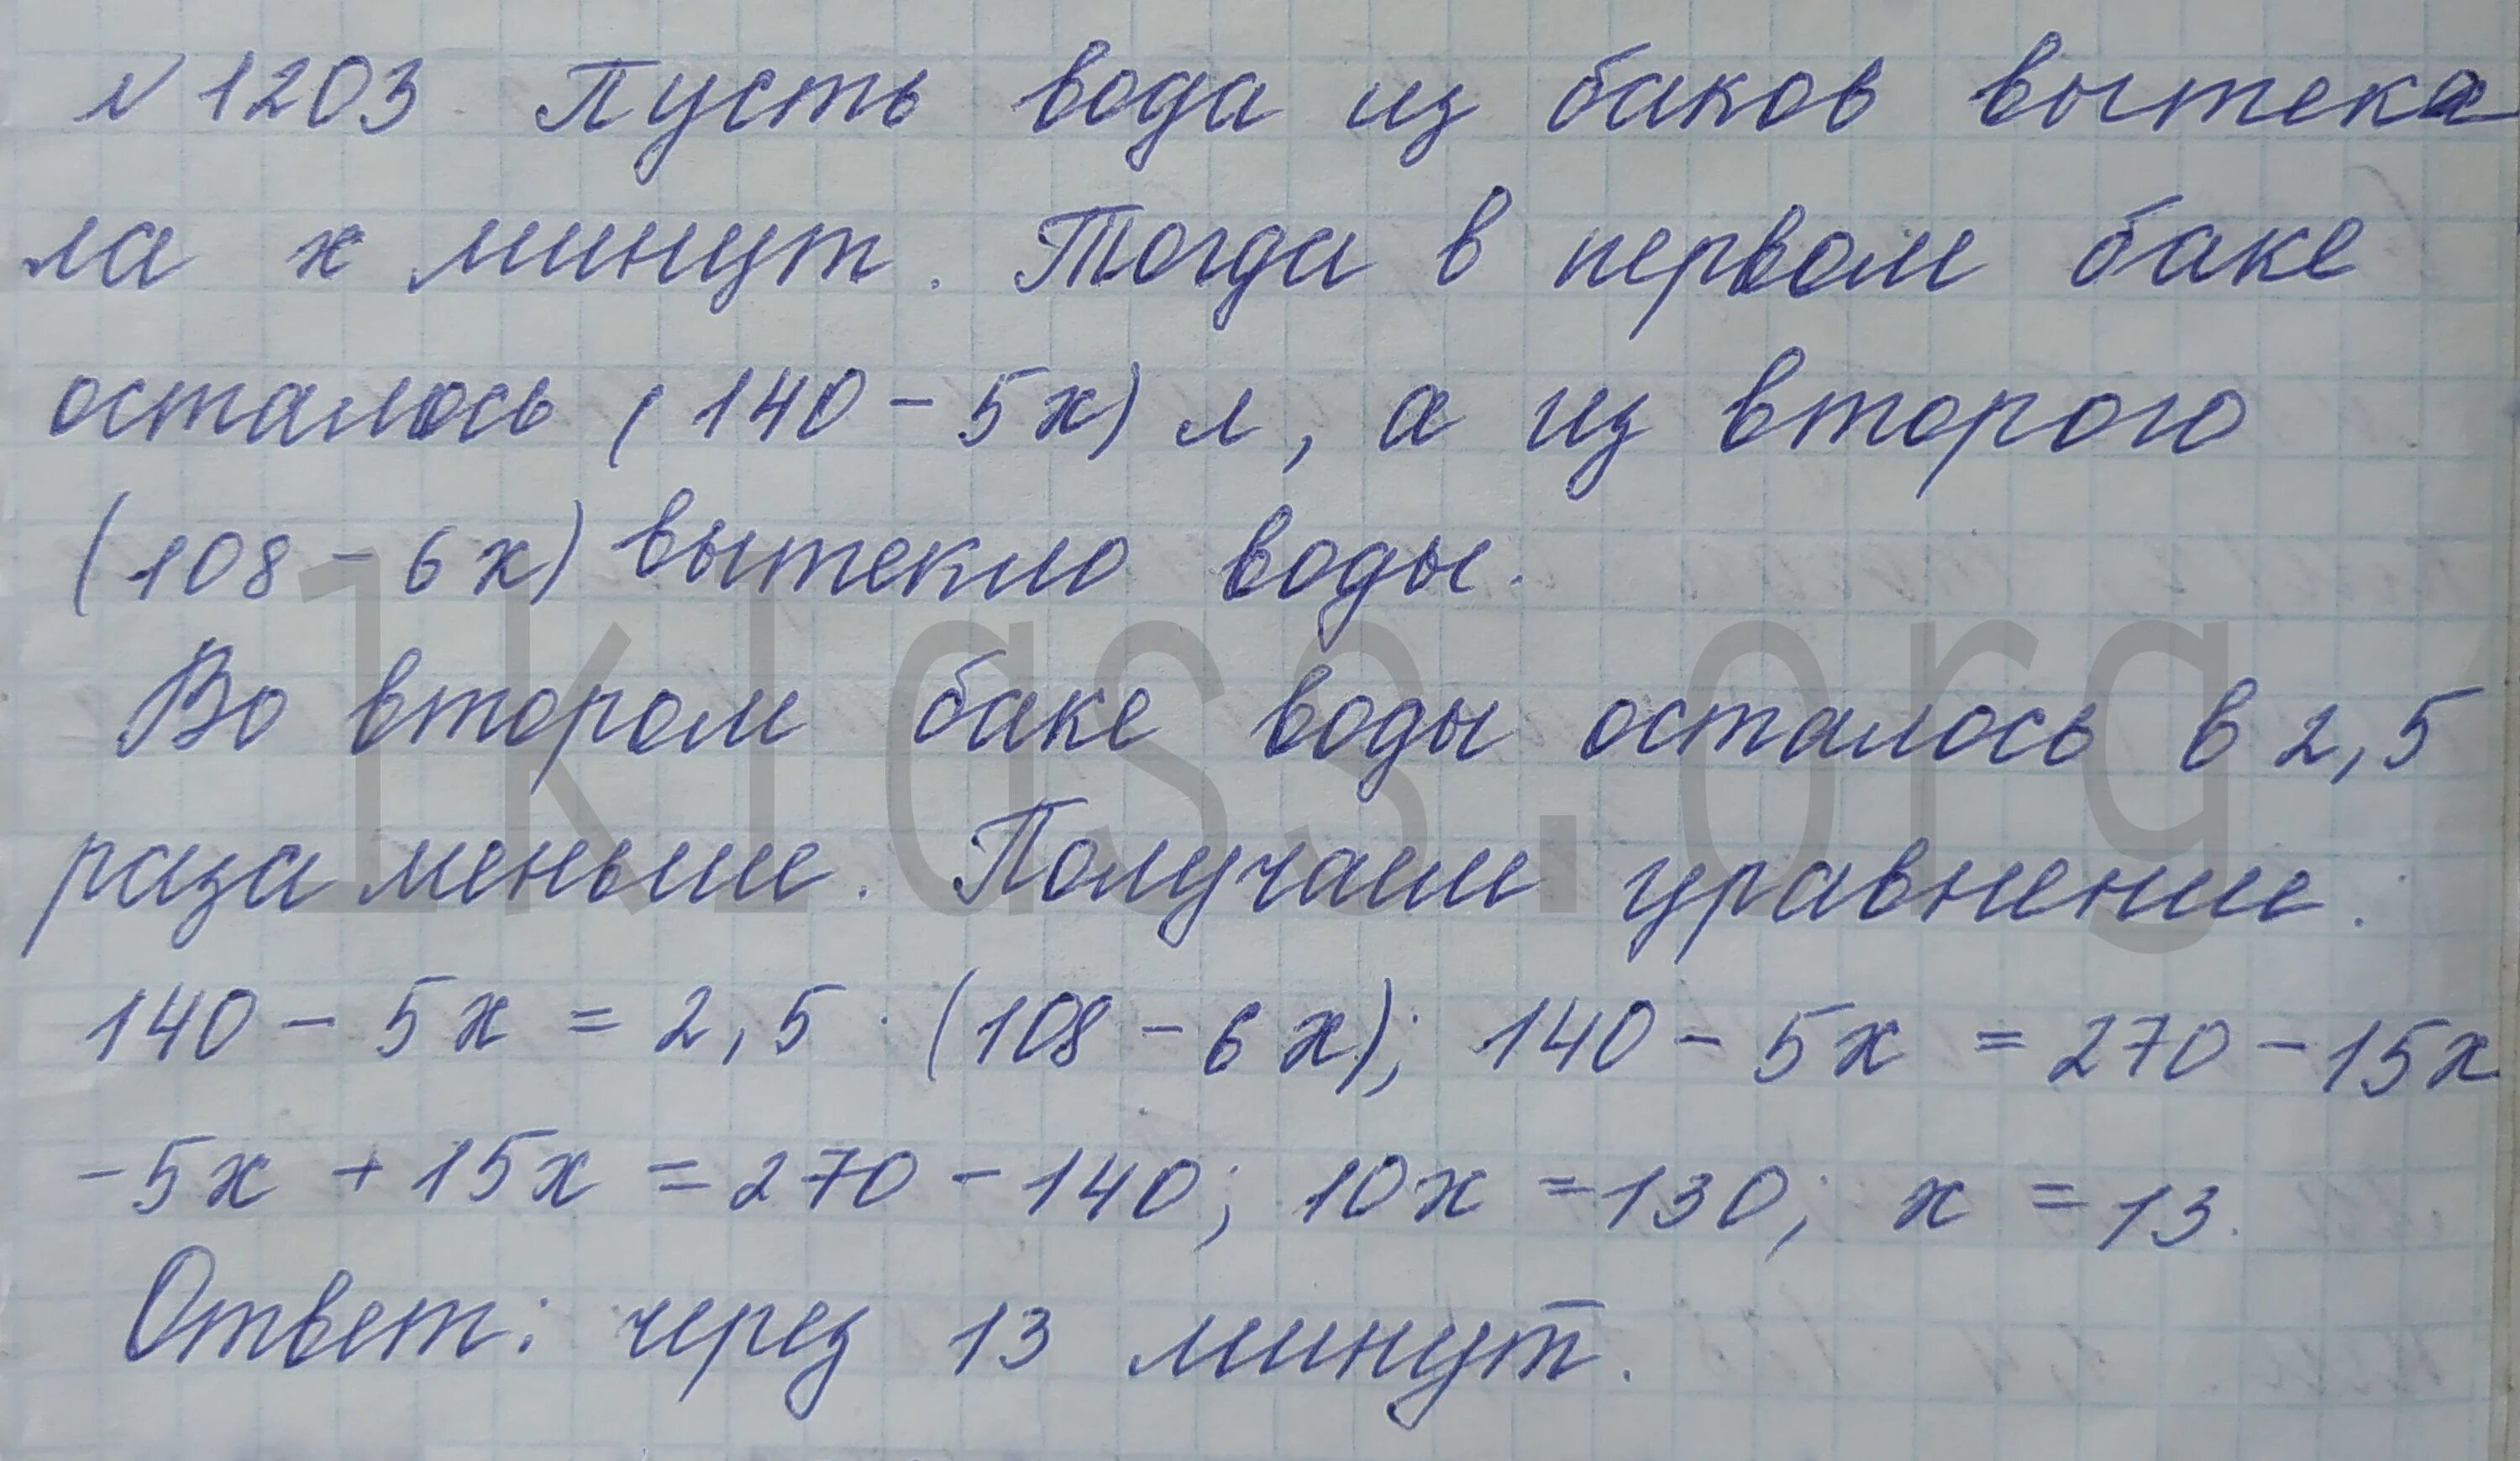 № 1203. Пусть вода из баков вытека
ла х минут. Тогда в первом баке
осталось (140 - 5х) л, а из второго
(108 - 6х) вытекло воды.
Во втором баке воды осталось в 2,5
раза меньше. Получаем уравнение:
140 - 5х = 2,5 · (108 - 6х); 140 - 5х = 270 - 15х
-5х + 15х = 270 - 140; 10х = 130; х = 13.
Ответ: через 13 минут.
lklass.org